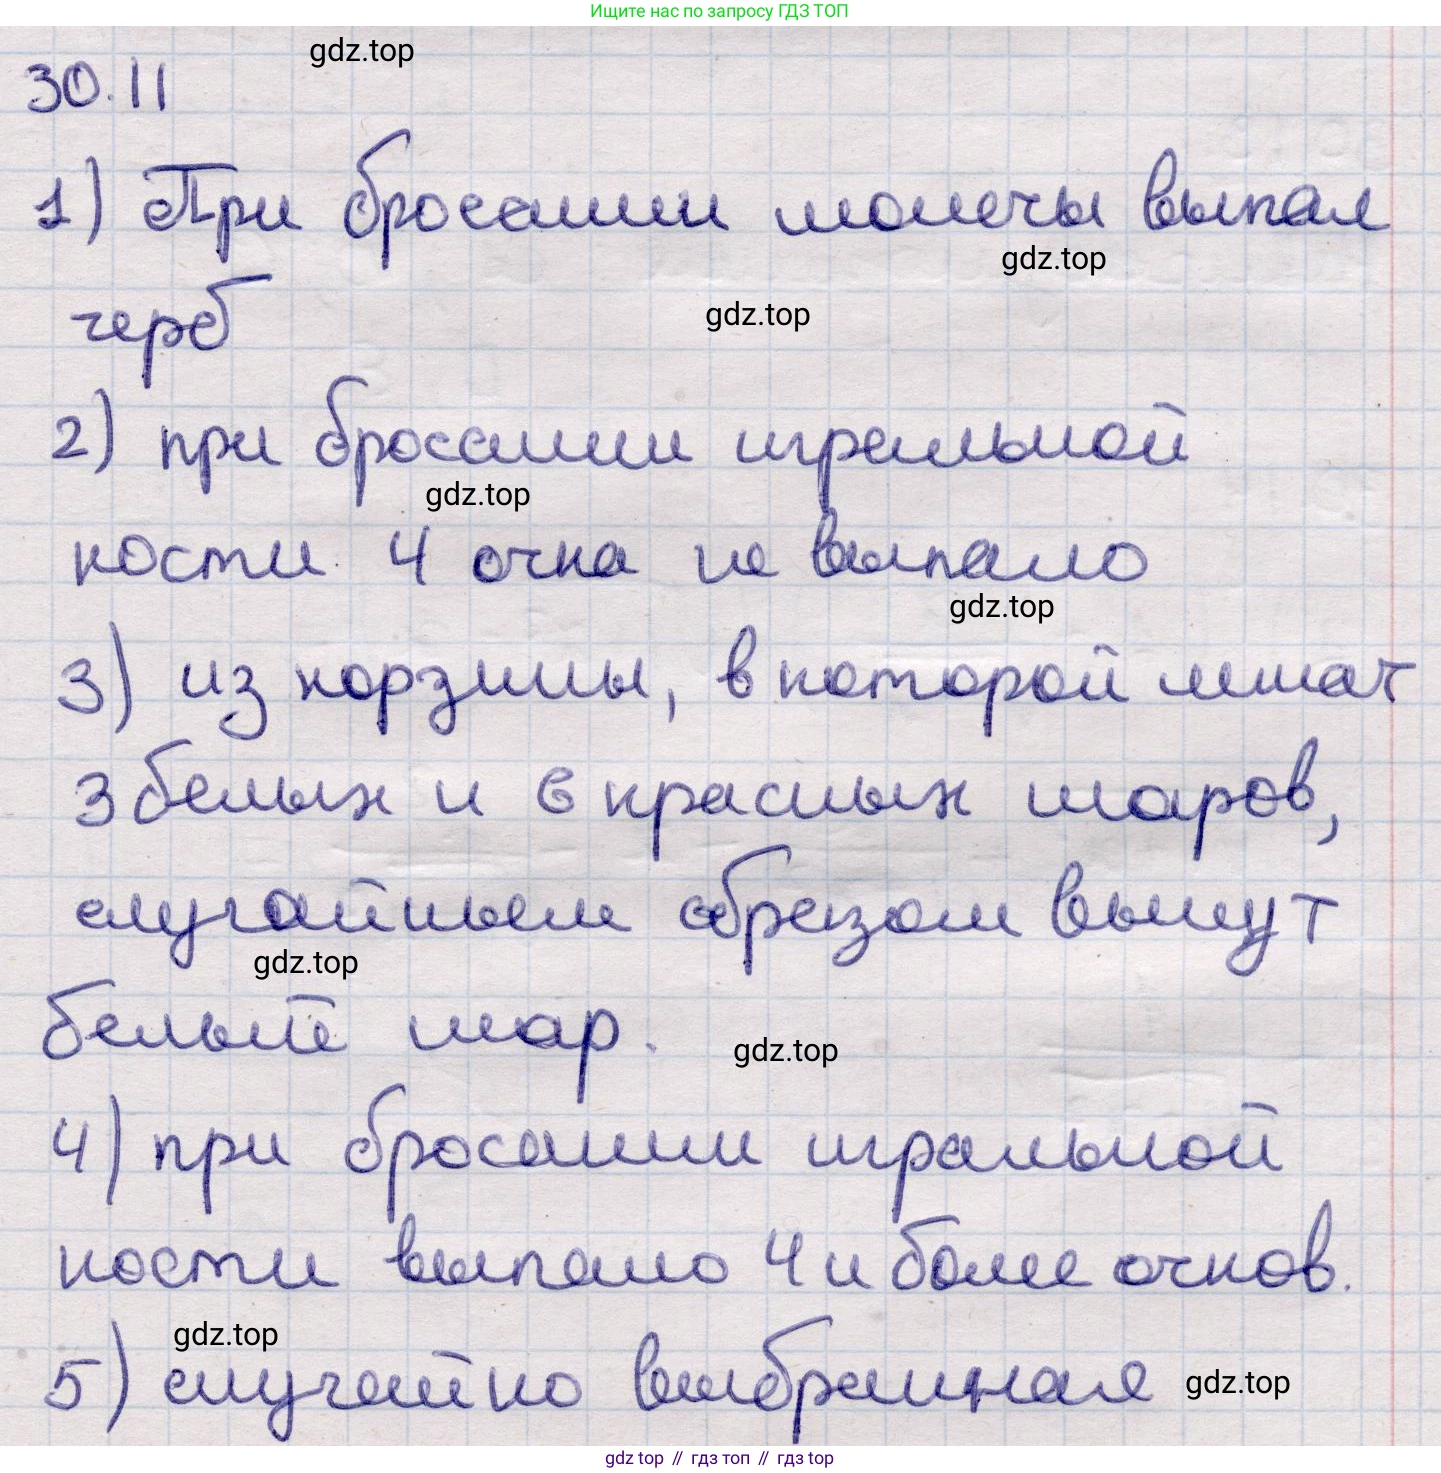 Ищите нас по запросу ГДЗ ТОП
gdz.top
30.11
1) При бросании монеты выпал
gdz.top
gdz.top
герб
2) при бросании игральной
gdz.top
кости 4 очка не выпало
gdz.top
3) из корзины, в которой лежат
3 белых и 6 красных шаров,
случайным образом вынут
gdz.top
белый шар.
gdz.top
4) при бросании игральной
кости выпало 4 и более очков.
gdz.top
5) случайно выбранная
gdz.top
gdz top // гдз топ // gdz top